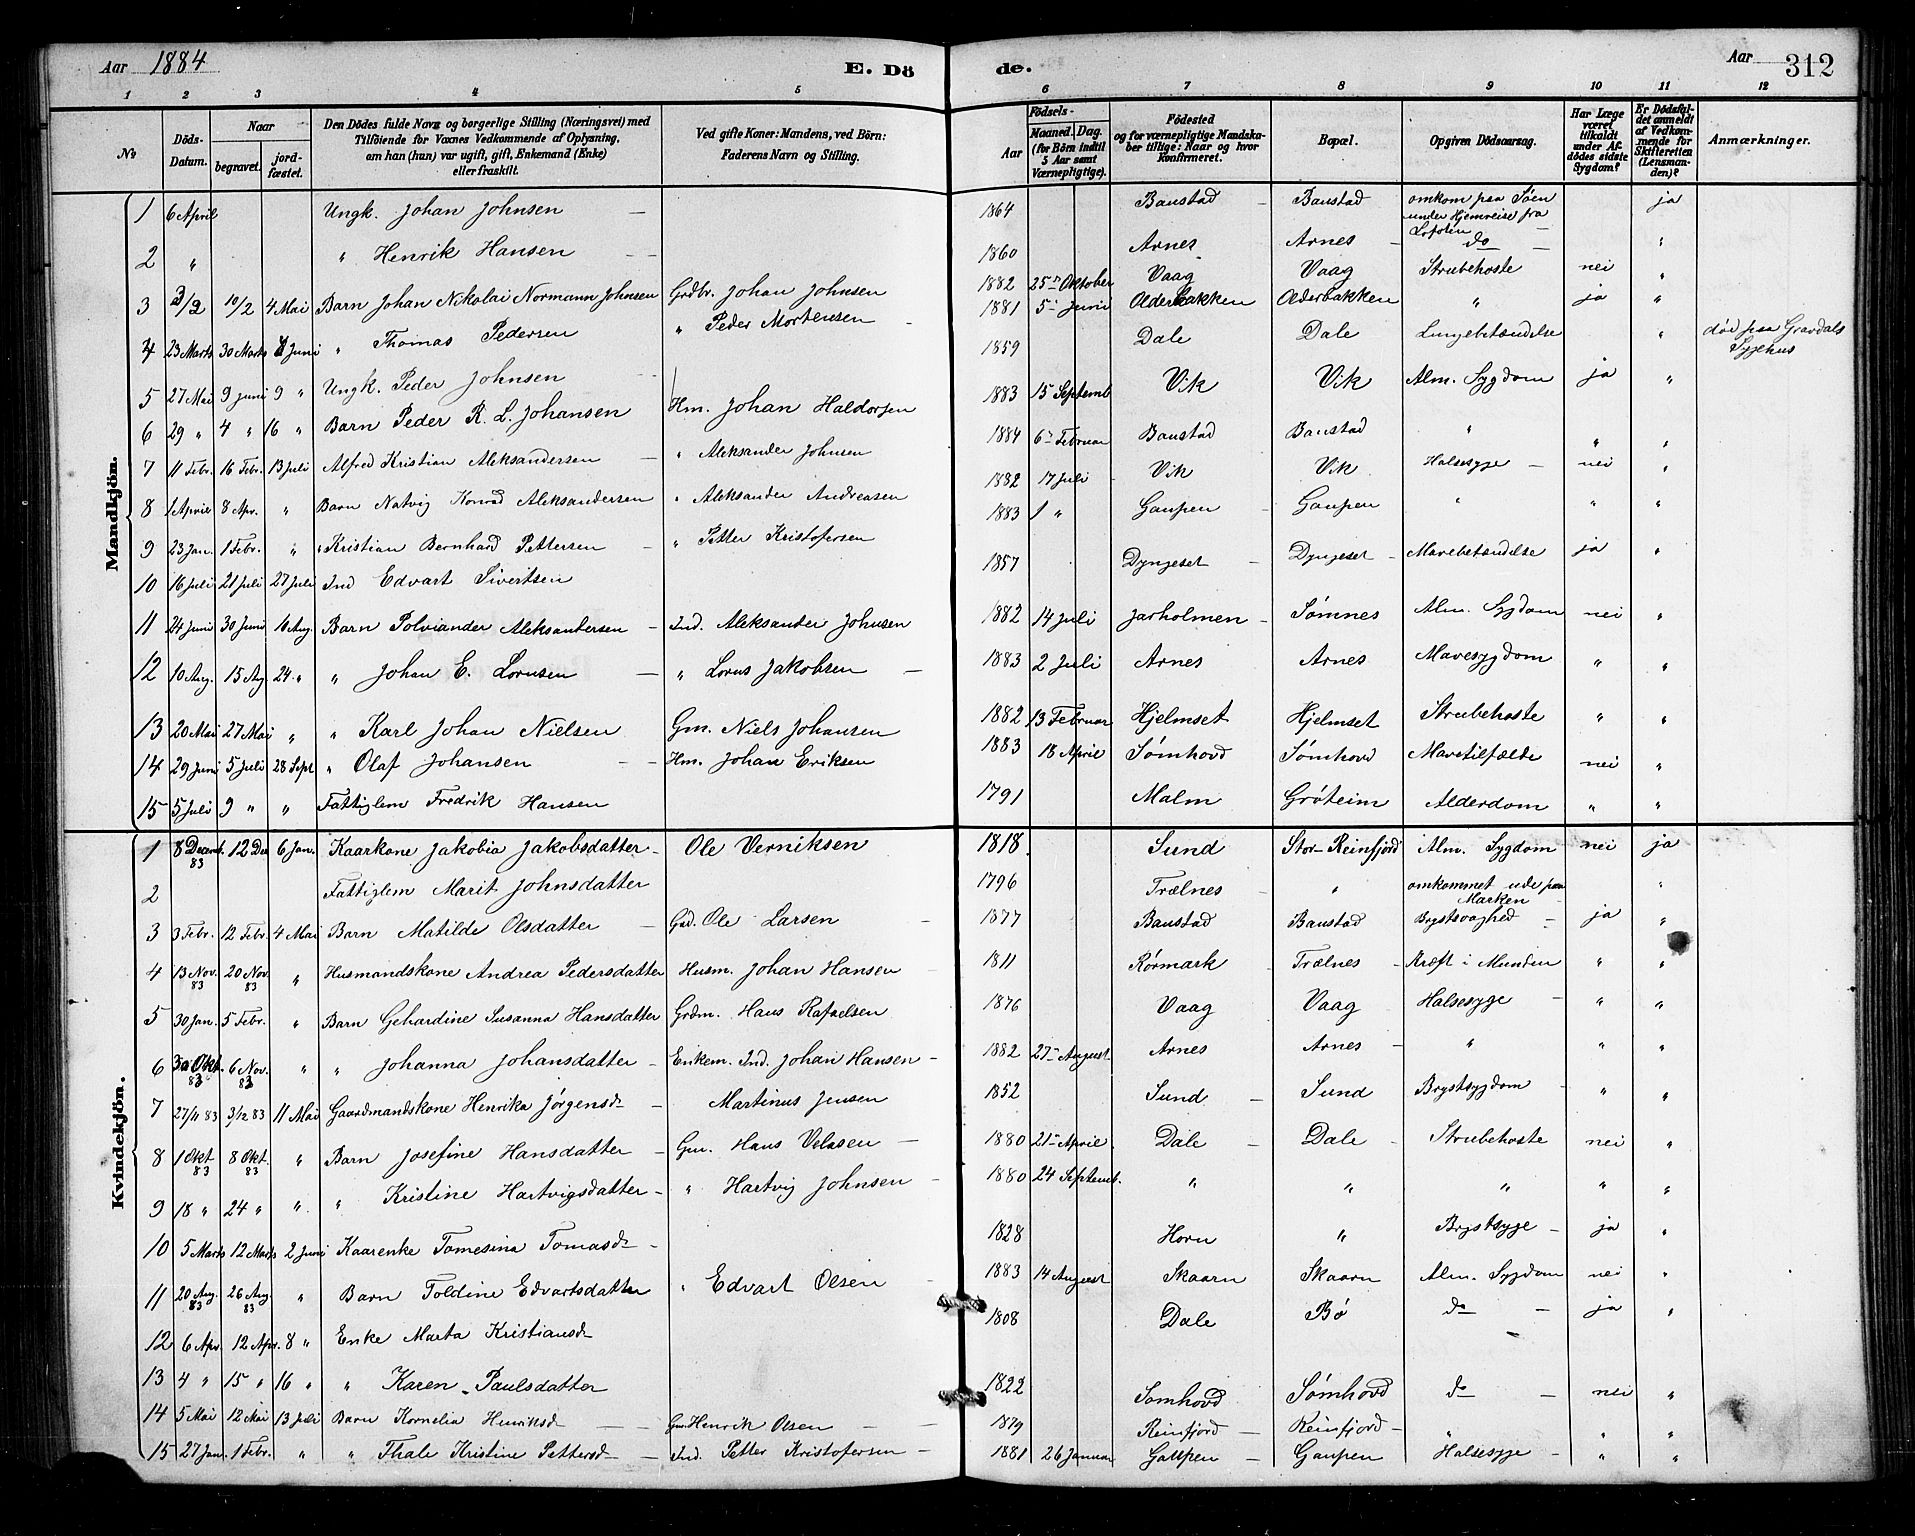 Aar 1884 E. Dö de. Aar 312
1 2 3 4 5 6 7 8 9 10 11 12
No Döds-Datum. Naar begravet. jord-fæstet. Den Dödes fulde Navn og borgerlige Stilling (Næringsvei) med Tilföiende for Voxnes Vedkommende af Oplysning, om han (hun) var ugift, gift, Enkemand (Enke) eller fraskilt. Ved gifte Koner: Mandens, ved Börn: Faderens Navn og Stilling. Aar Födsels-Maaned. Dag. (for Börn indtil 5 Aar samt Værnepligtige). Födested og for værnepligtige Mandskaber tillige: Naar og hvor Konfirmeret. Bopæl. Opgiven Dödsaarsag. Har Læge været tilkaldt under Afdödes sidste Sygdom? Er Dödsfaldet anmeldt af Vedkommende for Skifteretten (Lensmanden)? Anmærkninger.
Mandkjön.
1 6 April Ungk. Johan Johnsen — 1864 Baustad — Baustad omkom paa Søen under Hjemreise fra Lofoten ja
2 " " Henrik Hansen — 1860 Arnes Arnes — do — "
3 3/2 10/2 4 Mai Barn Johan Nikolai Normann Johnsen Grdbr. Johan Johnsen 1882 25 Oktober Vaag Vaag Strubehoste nei "
4 23 Marts 30 Marts 8 Juni " Thomas Pedersen " Peder Mortensen — 1881 5 Juni Olderbakken Olderbakken " ja "
5 27 Mai 9 Juni 9 " Ungk. Peder Johnsen 1859 Dale Dale Lungebetændelse " død paa Gravdals Sygehus
6 29 " 4 " 16 " Barn Peder R. L. Johansen Hm. Johan Haldorsen 1883 15 Septemb Vik Vik Alm. Sygdom ja "
7 11 Febr. 16 Febr. 13 Juli Alfred Kristian Aleksandersen — " Aleksander Johnsen 1884 6 Februar Baustad Baustad " " "
8 1 April 8 Apr. " Barn Natvig Konrad Aleksandersen " Aleksander Andreasen 1882 17 Juli Vik Vik Halsesyge — nei "
9 23 Jan. 1 Febr. " " Kristian Bernhard Pettersen — " Petter Kristofersen 1883 1 " Gaupen — Gaupen " " "
10 16 Juli 21 Juli 27 Juli Ind Edvart Sivertsen 1857 Dyngeset — Dyngeset — Mavebetændelse ja "
11 24 Juni 30 Juni 10 Aug. Barn Polviander Aleksandersen — Ind. Aleksander Johnsen 1882 14 Juli Jarholmen — Sømnes Alm. Sygdom nei "
12 10 Aug. 15 Aug 24 " " Johan E. Lornsen — " Lorns Jakobsen — 1883 2 Juli Arnes Arnes Mavesygdom " "
13 20 Mai 27 Mai " " Karl Johan Nielsen Gm. Niels Johansen 1882 13 Februar Hjelmset Hjelmset Strubehoste " "
14 29 Juni 5 Juli 28 Sept " Olaf Johansen — Hm. Johan Eriksen 1883 18 April Sømhovd Sømhovd Mavetilfælde nei "
15 5 Juli 9 " " Fattiglem Fredrik Hansen 1791 Malm Grøteim Alderdom " "
Kvindekjön.
1 8 Decemb. 83 12 Dec 6 Jan. Kaarkone Jakobia Jakobsdatter — Ole Verniksen 1818 Sund Stor-Reinfjord Alm. Sygdom nei ja
2 Fattiglem Marit Johnsdatter 1796 Trælnes " omkommet ude paa Marken "
3 3 Febr. 12 Febr. 4 Mai Barn Matilde Olsdatter — Grd. Ole Larsen — 1877 Baustad Baustad Brystsvaghed — ja "
4 13 Nov. 83 20 Nov. 83 " Husmandskone Andrea Pedersdatter Husm. Johan Hansen 1811 Rørmark — Trælnes — Kræft i Munden " "
5 30 Jan. 5 Febr. " Barn Gehardine Susanna Hansdatter Grdm. Hans Rafaelsen 1876 Vaag Vaag Halsesyge — " "
6 30 Okt. 83 6 Nov. 83 " " Johanna Johansdatter — Enkem. Ind. Johan Hansen — 1882 27 August Arnes Arnes — " " "
7 27/11 83 3/12 83 11 Mai Gaardmandskone Henrika Jørgensd — Martinus Jensen 1852 Sund — Sund Brystsygdom — " "
8 1 Okt 83 8 Okt. 83 " Barn Josefine Hansdatter — Gm. Hans Velasen — 1880 21 April. Dale Dale — Strubehoste nei "
9 18 " 24 " " " Kristine Hartvigsdatter — " Hartvig Johnsen — 1880 24 Septemb. " " " " "
10 5 Marts 12 Marts 2 Juni Kaarenke Tomesina Tomasd — 1828 Horn " Brystsyge — ja "
11 20 Aug. 83 26 Aug. 83 " Barn Toldine Edvartsdatter " Edvart Olsen — 1883 14 August Skaarn Skaarn Alm. Sygdom nei "
12 6 Apr. 12 Apr. 8 " Enke Marta Kristiansd 1808 Dale Bø do — ja "
13 4 " 15 " 16 " " Karen Paulsdatter 1822 Somhovd Sømhovd do — nei "
14 5 Mai 12 Mai 13 Juli Barn Kornelia Henriksd — Gm. Henrik Olsen — 1879 Reinfjord — Reinfjord — " " "
15 27 Jan. 1 Febr. " " Thale Kristine Pettersd — Ind. Petter Kristofersen — 1881 26 Januar Gaupen — Gaupen Halsesyge — " "